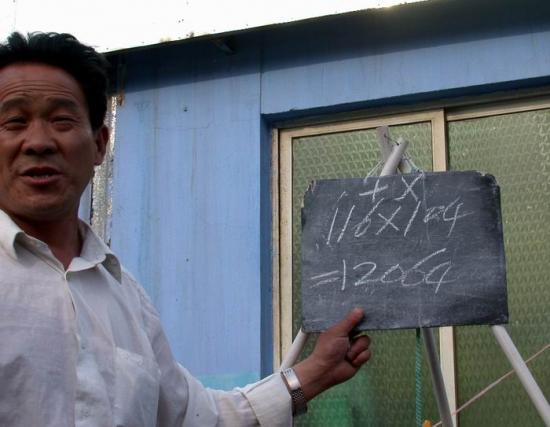 + ×
116×104
=12064